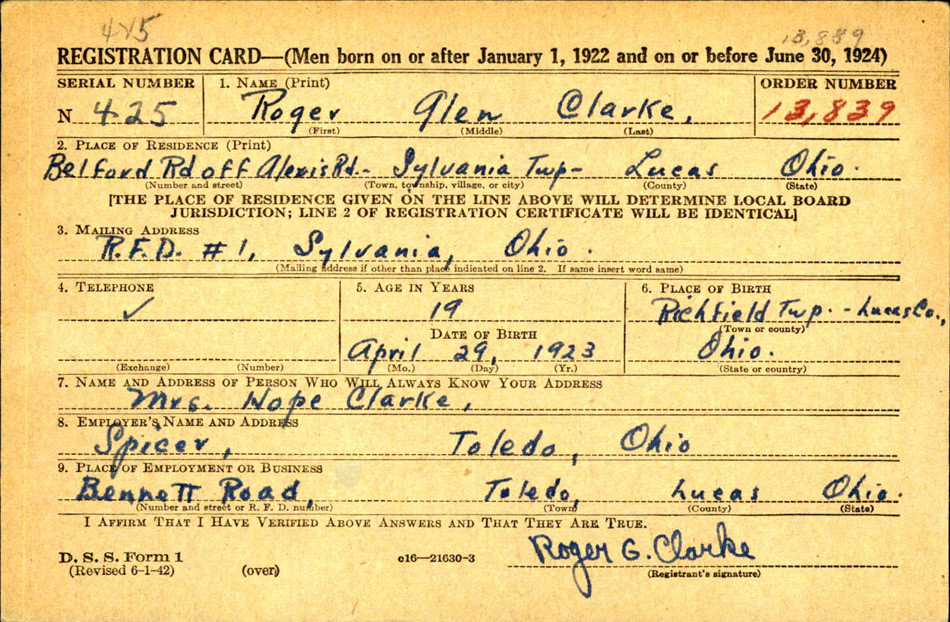 425
13,889
REGISTRATION CARD—(Men born on or after January 1, 1922 and on or before June 30, 1924)
SERIAL NUMBER 1. NAME (Print) ORDER NUMBER
N 425 Roger Glen Clarke, 13,839
(First) (Middle) (Last)
2. PLACE OF RESIDENCE (Print)
Belford Rd off Alexis Rd.- Sylvania Twp- Lucas Ohio.
(Number and street) (Town, township, village, or city) (County) (State)
[THE PLACE OF RESIDENCE GIVEN ON THE LINE ABOVE WILL DETERMINE LOCAL BOARD
JURISDICTION; LINE 2 OF REGISTRATION CERTIFICATE WILL BE IDENTICAL]
3. MAILING ADDRESS
R.F.D. #1, Sylvania, Ohio.
(Mailing address if other than place indicated on line 2. If same insert word same)
4. TELEPHONE 5. AGE IN YEARS 6. PLACE OF BIRTH
✓ 19 Richfield Twp. - Lucas Co.,
(Town or county)
DATE OF BIRTH
April 29, 1923 Ohio.
(Exchange) (Number) (Mo.) (Day) (Yr.) (State or country)
7. NAME AND ADDRESS OF PERSON WHO WILL ALWAYS KNOW YOUR ADDRESS
Mrs. Hope Clarke,
8. EMPLOYER'S NAME AND ADDRESS
Spicer, Toledo, Ohio
9. PLACE OF EMPLOYMENT OR BUSINESS
Bennett Road, Toledo, Lucas Ohio.
(Number and street or R. F. D. number) (Town) (County) (State)
I AFFIRM THAT I HAVE VERIFIED ABOVE ANSWERS AND THAT THEY ARE TRUE.
D. S. S. Form 1 c16—21630-3 Roger G. Clarke
(Revised 6-1-42) (over) (Registrant's signature)